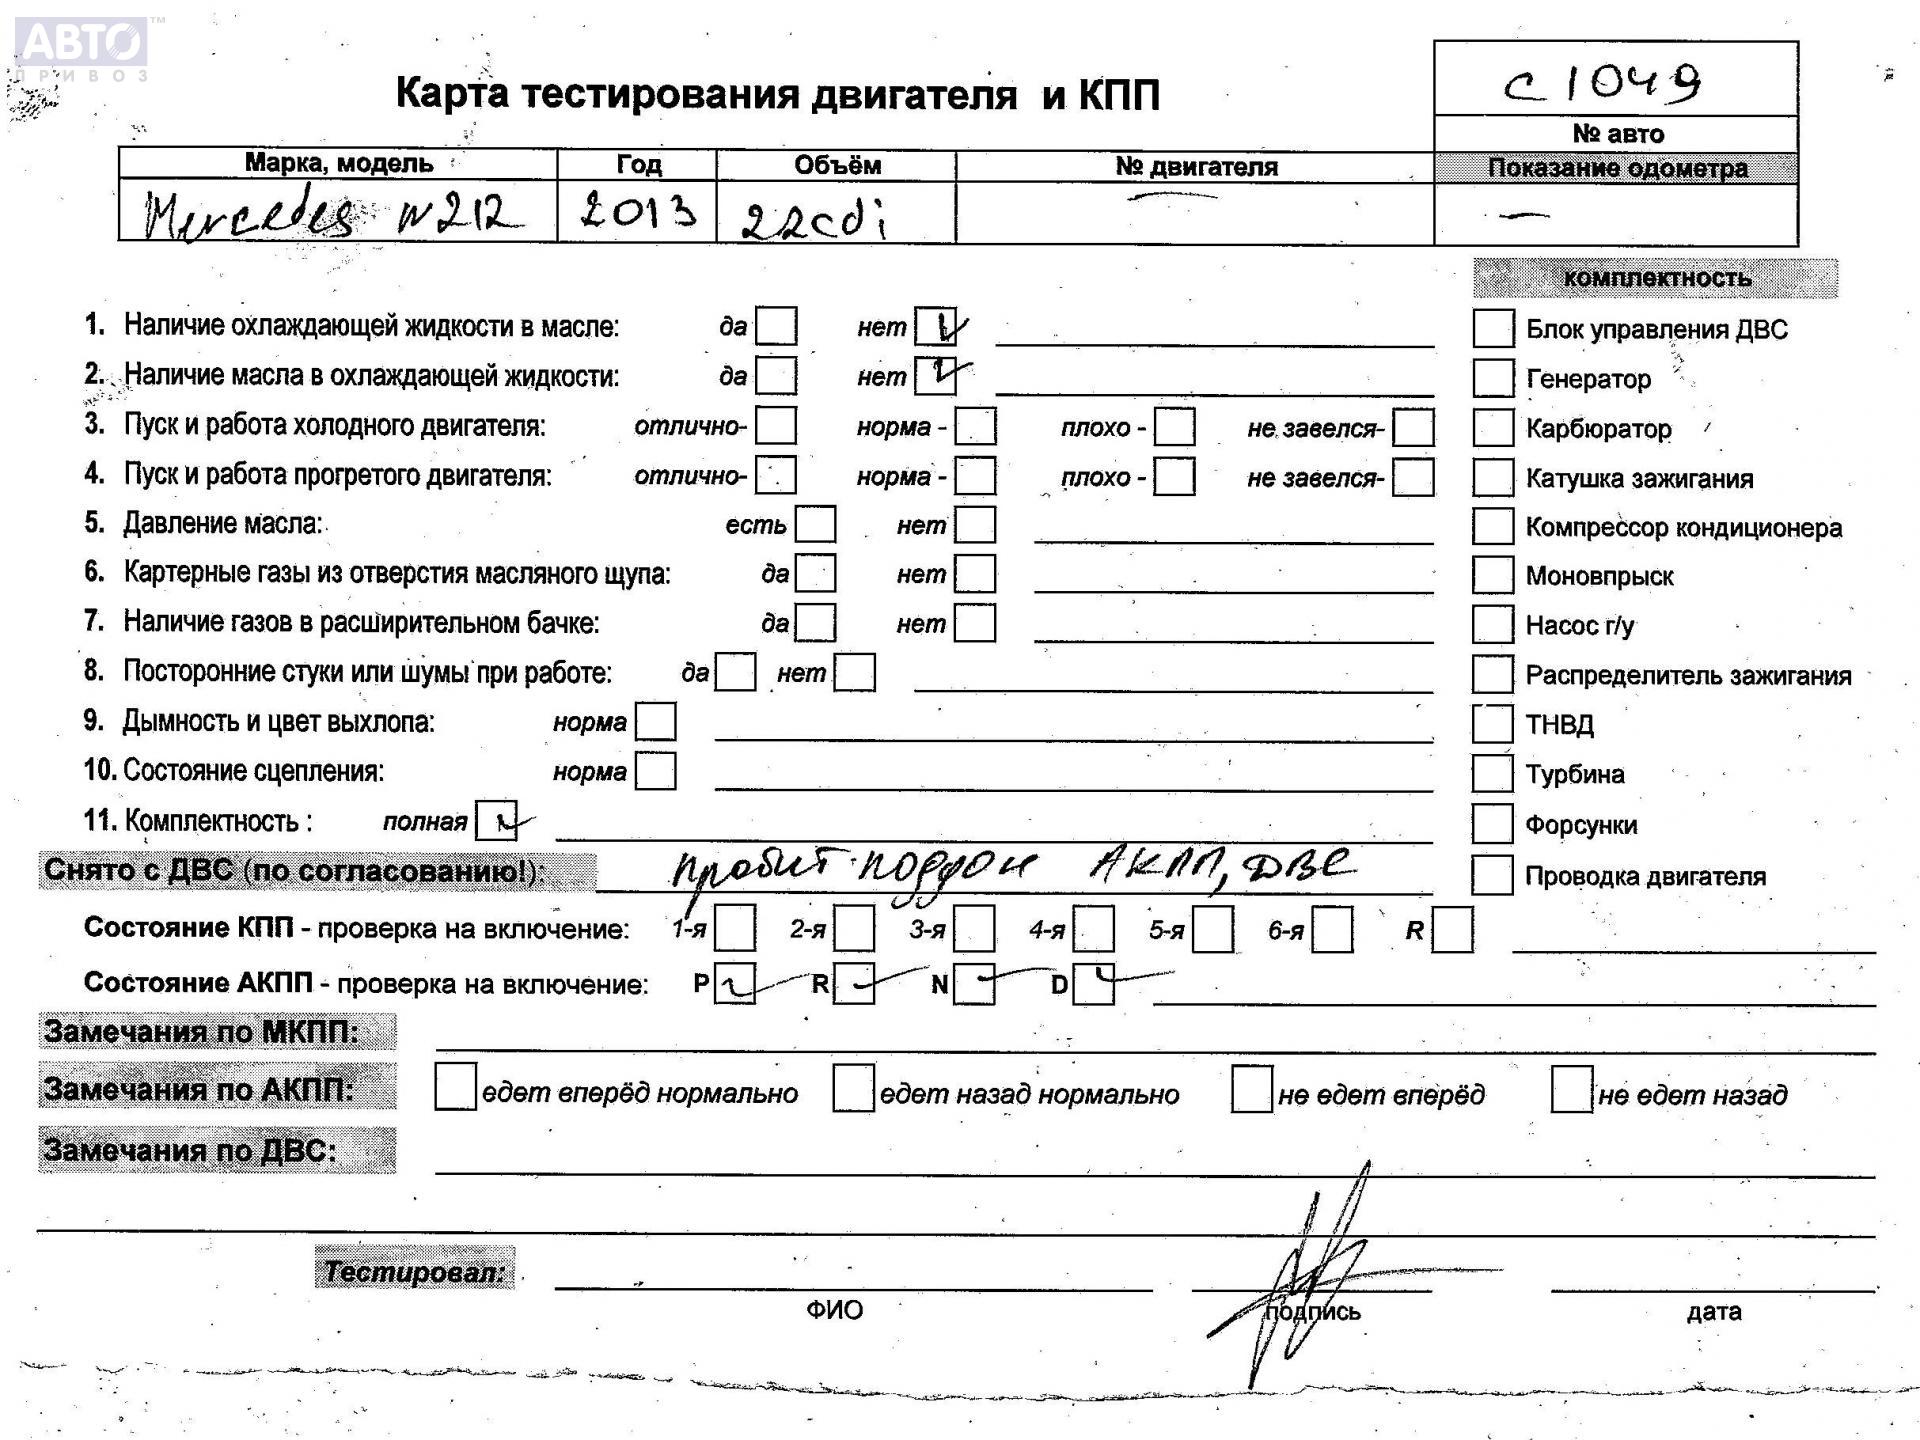 АВТО™
ПРИВОЗ
Карта тестирования двигателя и КПП
с 1049
№ авто
Марка, модель Год Объём № двигателя Показание одометра
Mercedes w212 2013 22cdi — —
комплектность
1. Наличие охлаждающей жидкости в масле: да нет Блок управления ДВС
2. Наличие масла в охлаждающей жидкости: да нет Генератор
3. Пуск и работа холодного двигателя: отлично- норма - плохо - не завелся- Карбюратор
4. Пуск и работа прогретого двигателя: отлично- норма - плохо - не завелся- Катушка зажигания
5. Давление масла: есть нет Компрессор кондиционера
6. Картерные газы из отверстия масляного щупа: да нет Моновпрыск
7. Наличие газов в расширительном бачке: да нет Насос г/у
8. Посторонние стуки или шумы при работе: да нет Распределитель зажигания
9. Дымность и цвет выхлопа: норма ТНВД
10. Состояние сцепления: норма Турбина
11. Комплектность : полная Форсунки
Снято с ДВС (по согласованию!): пробит поддон АКПП, ДВС Проводка двигателя
Состояние КПП - проверка на включение: 1-я 2-я 3-я 4-я 5-я 6-я R
Состояние АКПП - проверка на включение: P R N D
Замечания по МКПП:
Замечания по АКПП: едет вперёд нормально едет назад нормально не едет вперёд не едет назад
Замечания по ДВС:
Тестировал:
ФИО подпись дата